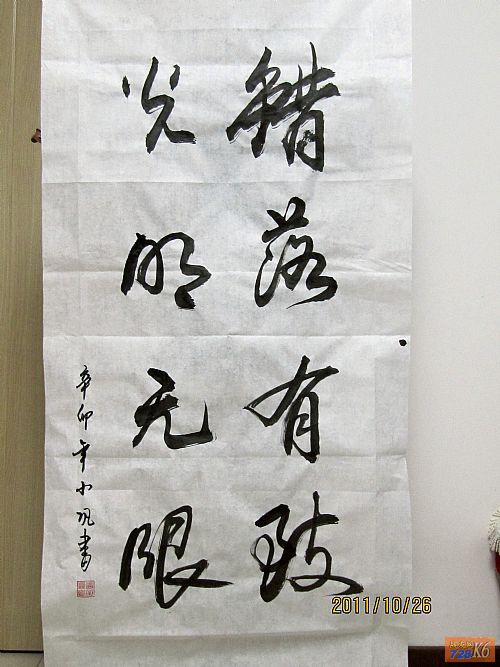 错落有致
光明无限
辛卯年小凡书
2011/10/26
728K6